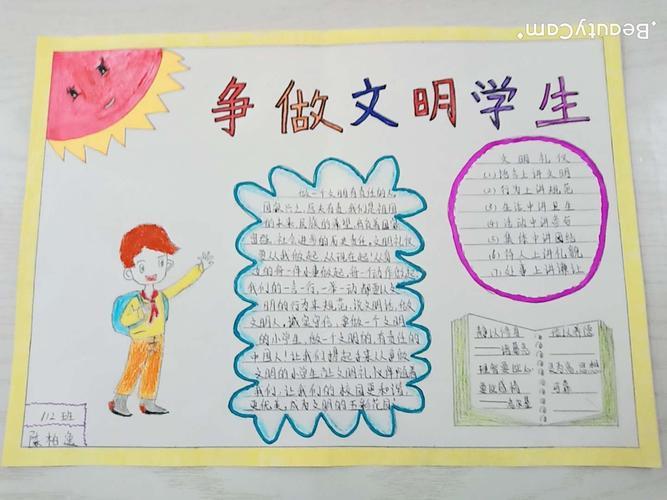 BeautyCam
争做文明学生
做一个文明有责任的人
国家兴亡,匹夫有责,我们是祖国
的未来,民族的希望,肩负着国家
富强,社会进步的历史责任,文明礼仪
要从我做起,从现在起,从身
边的每一件小事做起,每一个动作做起
我们的一言一行,一举一动都要以文
明的行为来规范,说文明话,做
文明人,诚实守信,争做一个文明
的小学生,做一个文明的,有责任的
中国人!让我们携起手来从争做
文明的小学生让文明礼仪伴随着
我们,让我们的校园更和谐,
更优美,成为文明的五彩花园!
文明礼仪
(1)语言上讲文明
(2)行为上讲规范
(3)生活中讲卫生
(4)活动中讲
(5)集体中讲团结
(6)待人上讲礼貌
(7)处事上讲谦让
静以修身
俭以养德
诸葛亮
112班
陈柏